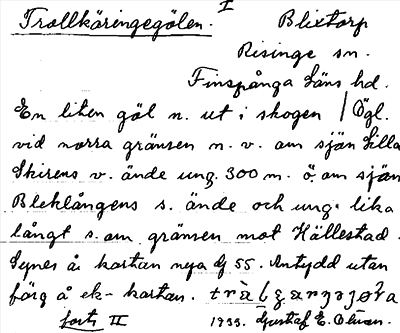 I
Trollkäringegölen. Blixtorp
Risinge sn.
Finspånga läns hd.
En liten göl n. ut i skogen / Ögl.
vid norra gränsen n. v. om sjön Lilla
Skirens v. ände ung. 300 m. ö. om sjön
Bleklångens s. ände och ung. lika
långt s. om gränsen mot Hällestad.
Synes å kartan nya G 55. Antydd utan
färg å ek-kartan.
forts II 1933. Gustaf E. Olsson.